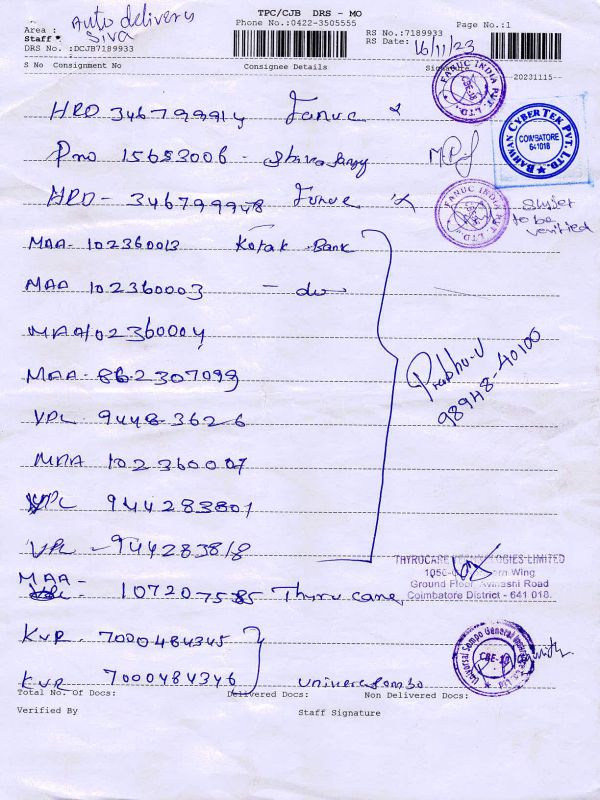 TPC/CJB DRS - MO
Phone No.:0422-3505555
Page No.:1
Area : Auto delivery
Staff : Siva
DRS No. :DCJB7189933
RS No.:7189933
RS Date: 16/11/23
S No Consignment No Consignee Details Signature
20231115--
HRO 346799914 Fanuc
FANUC INDIA PVT. LTD.
Pno 15653006 -
BAHWAN CYBERTEK PVT. LTD.
COIMBATORE
641018
HRO - 346799948 Fanuc
FANUC INDIA PVT. LTD.
to be
verified
MAA - 102360013 Kotak Bank
MAA 102360003 - do
MAA 102360004
MAA - 862307099
Prabhu.V
98948-40100
VPL - 9448-3626
MAA 102360007
VPL 944283801
VPL - 944283818
THYROCARE TECHNOLOGIES LIMITED
Wing
Ground Floor, Avinashi Road
Coimbatore District - 641 018.
MAA - 107207585 Thyrucare
KVR - 7000484345
KVR 7000484346 Universombo
Universal Sompo General Insurance Co. Ltd
CBE-18
Total No. Of Docs: Delivered Docs: Non Delivered Docs:
Verified By Staff Signature